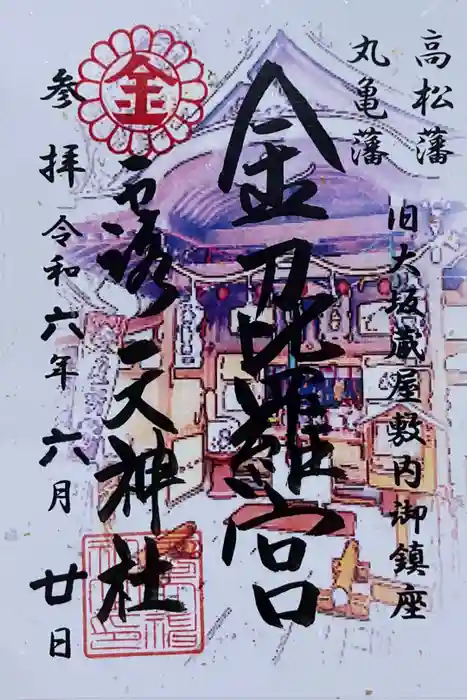 高松藩
丸亀藩
旧大坂蔵屋敷内御鎮座
金刀比羅宮
金
露天神社
参拝
令和六年六月廿日